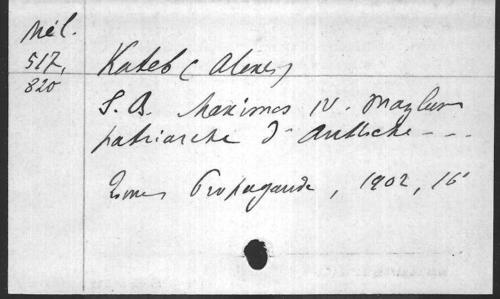 Mél.
517,
820
Kateb (Alexis)
S. B. Maximos IV. Mazlum
patriarche d'Antioche - - -
Propagande, 1902, 16°